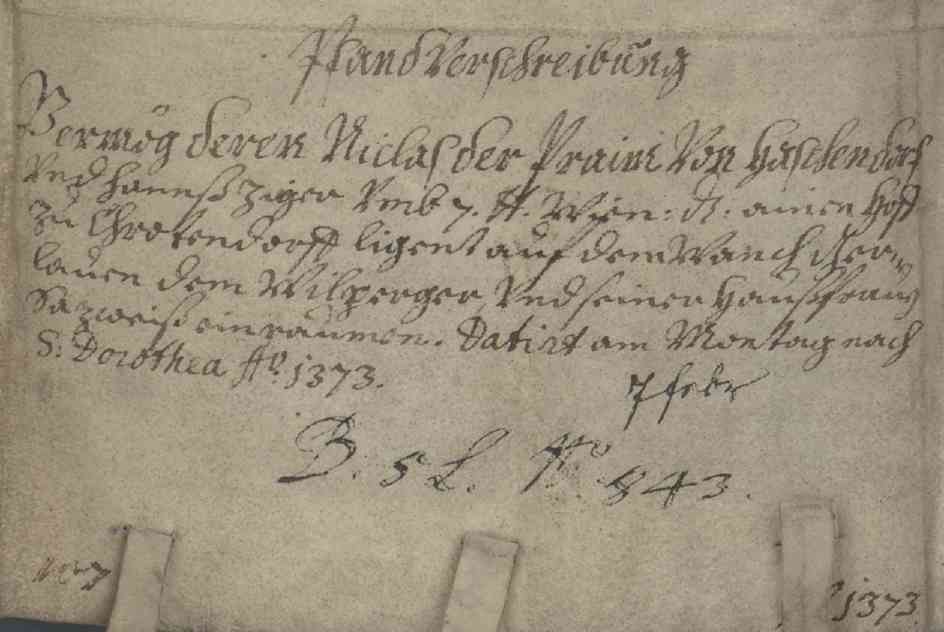 Pfand Verschreibung
Vermög deren Niclas der Praim Von Haschendorf
Vnd Hannß Ziger Vmb 7. ℔. Wien: ₰: ainen Hoff
Zu Chrotendorff ligent auf dem
lauen dem Wilperger Vnd seiner Haußfraun
Sazweiß ein raumen. Datirt am Montag nach
S: Dorothea Aº. 1373.
7 febr
B. 5 L. Nº. 843.
1373